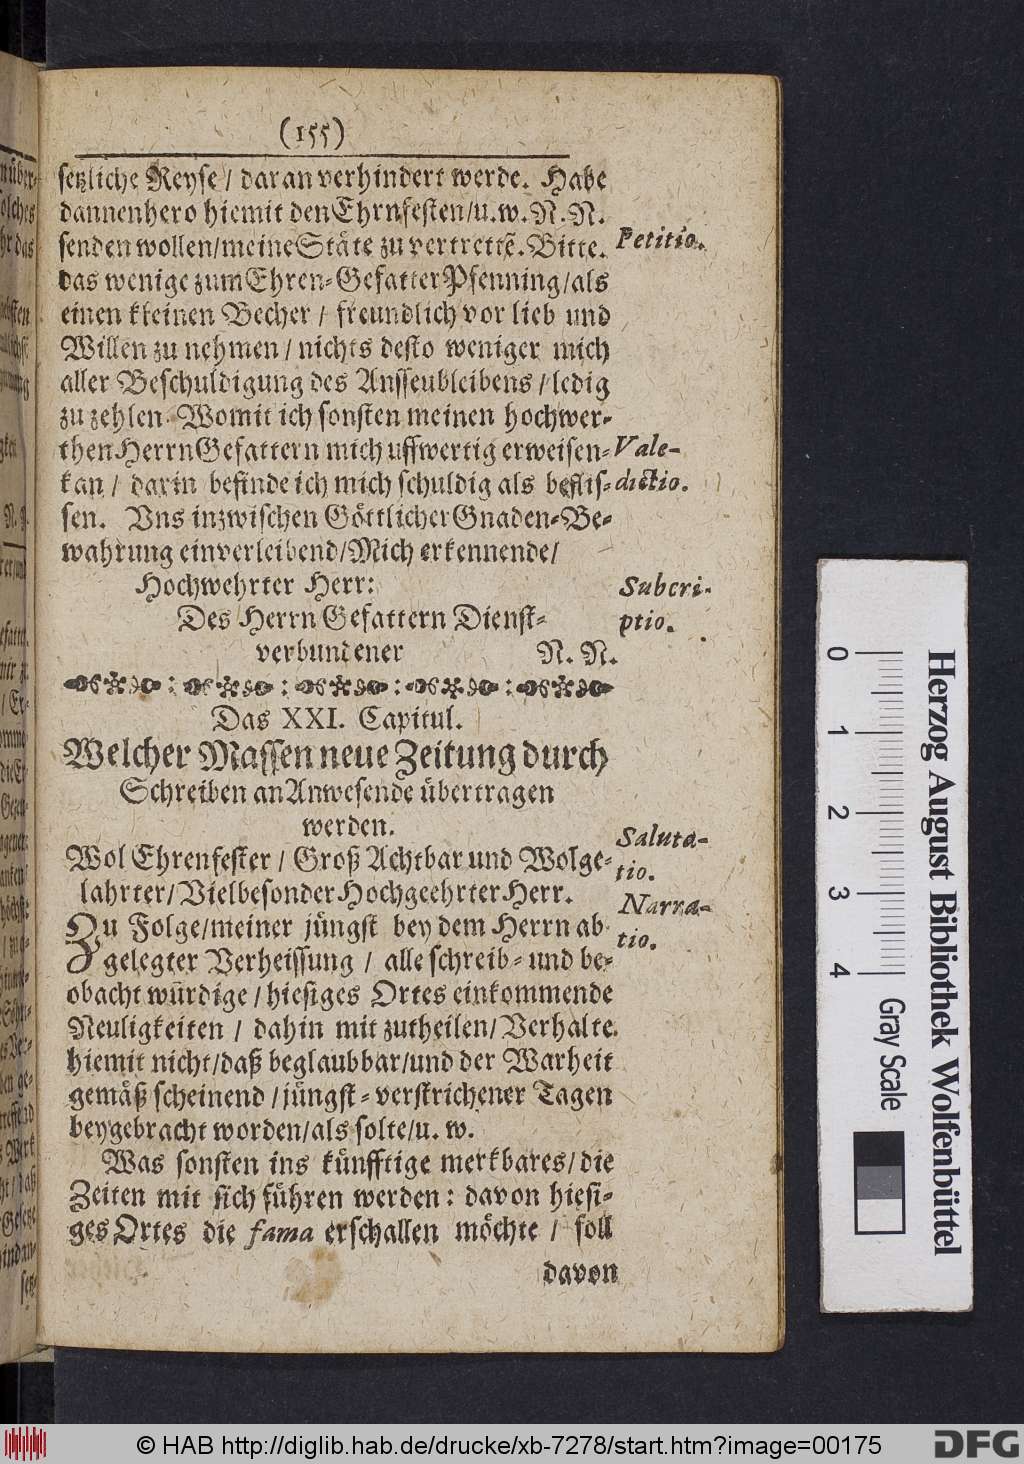 (155)
setzliche Reyse / daran verhindert werde. Habe
dannenhero hiemit den Ehrnfesten/u.w.N.N.
senden wollen/meine Stäte zu vertrettẽ. Bitte. Petitio.
das wenige zum Ehren-Gefatter Pfenning/als
einen kleinen Becher / freundlich vor lieb und
Willen zu nehmen / nichts desto weniger mich
aller Beschuldigung des Aussenbleibens / ledig
zu zehlen. Womit ich sonsten meinen hochwer-
then Herrn Gefattern mich uffwertig erweisen- Vale-
kan / darin befinde ich mich schuldig als beflis- dictio.
sen. Vns inzwischen Göttlicher Gnaden-Be-
wahrung einverleibend/Mich erkennende/
Hochwehrter Herr: Subcri-
Des Herrn Gefattern Dienst- ptio.
verbundener N. N.
Das XXI. Capitul.
Welcher Massen neue Zeitung durch
Schreiben an Anwesende übertragen
werden.
Wol Ehrenfester / Groß Achtbar und Wolge- Saluta-
lahrter/ Vielbesonder Hochgeehrter Herr. tio.
Zu Folge/meiner jüngst bey dem Herrn ab Narra-
gelegter Verheissung / alle schreib- und be- tio.
obacht würdige / hiesiges Ortes einkommende
Neuligkeiten / dahin mit zutheilen/ Verhalte
hiemit nicht/daß beglaubbar/und der Warheit
gemäß scheinend / jüngst- verstrichener Tagen
beygebracht worden/als solte/u. w.
Was sonsten ins künfftige merkbares/ die
Zeiten mit sich führen werden: davon hiesi-
ges Ortes die fama erschallen möchte / soll
davon
0 1 2 3 4
Gray Scale
Herzog August Bibliothek Wolfenbüttel
© HAB http://diglib.hab.de/drucke/xb-7278/start.htm?image=00175
DFG